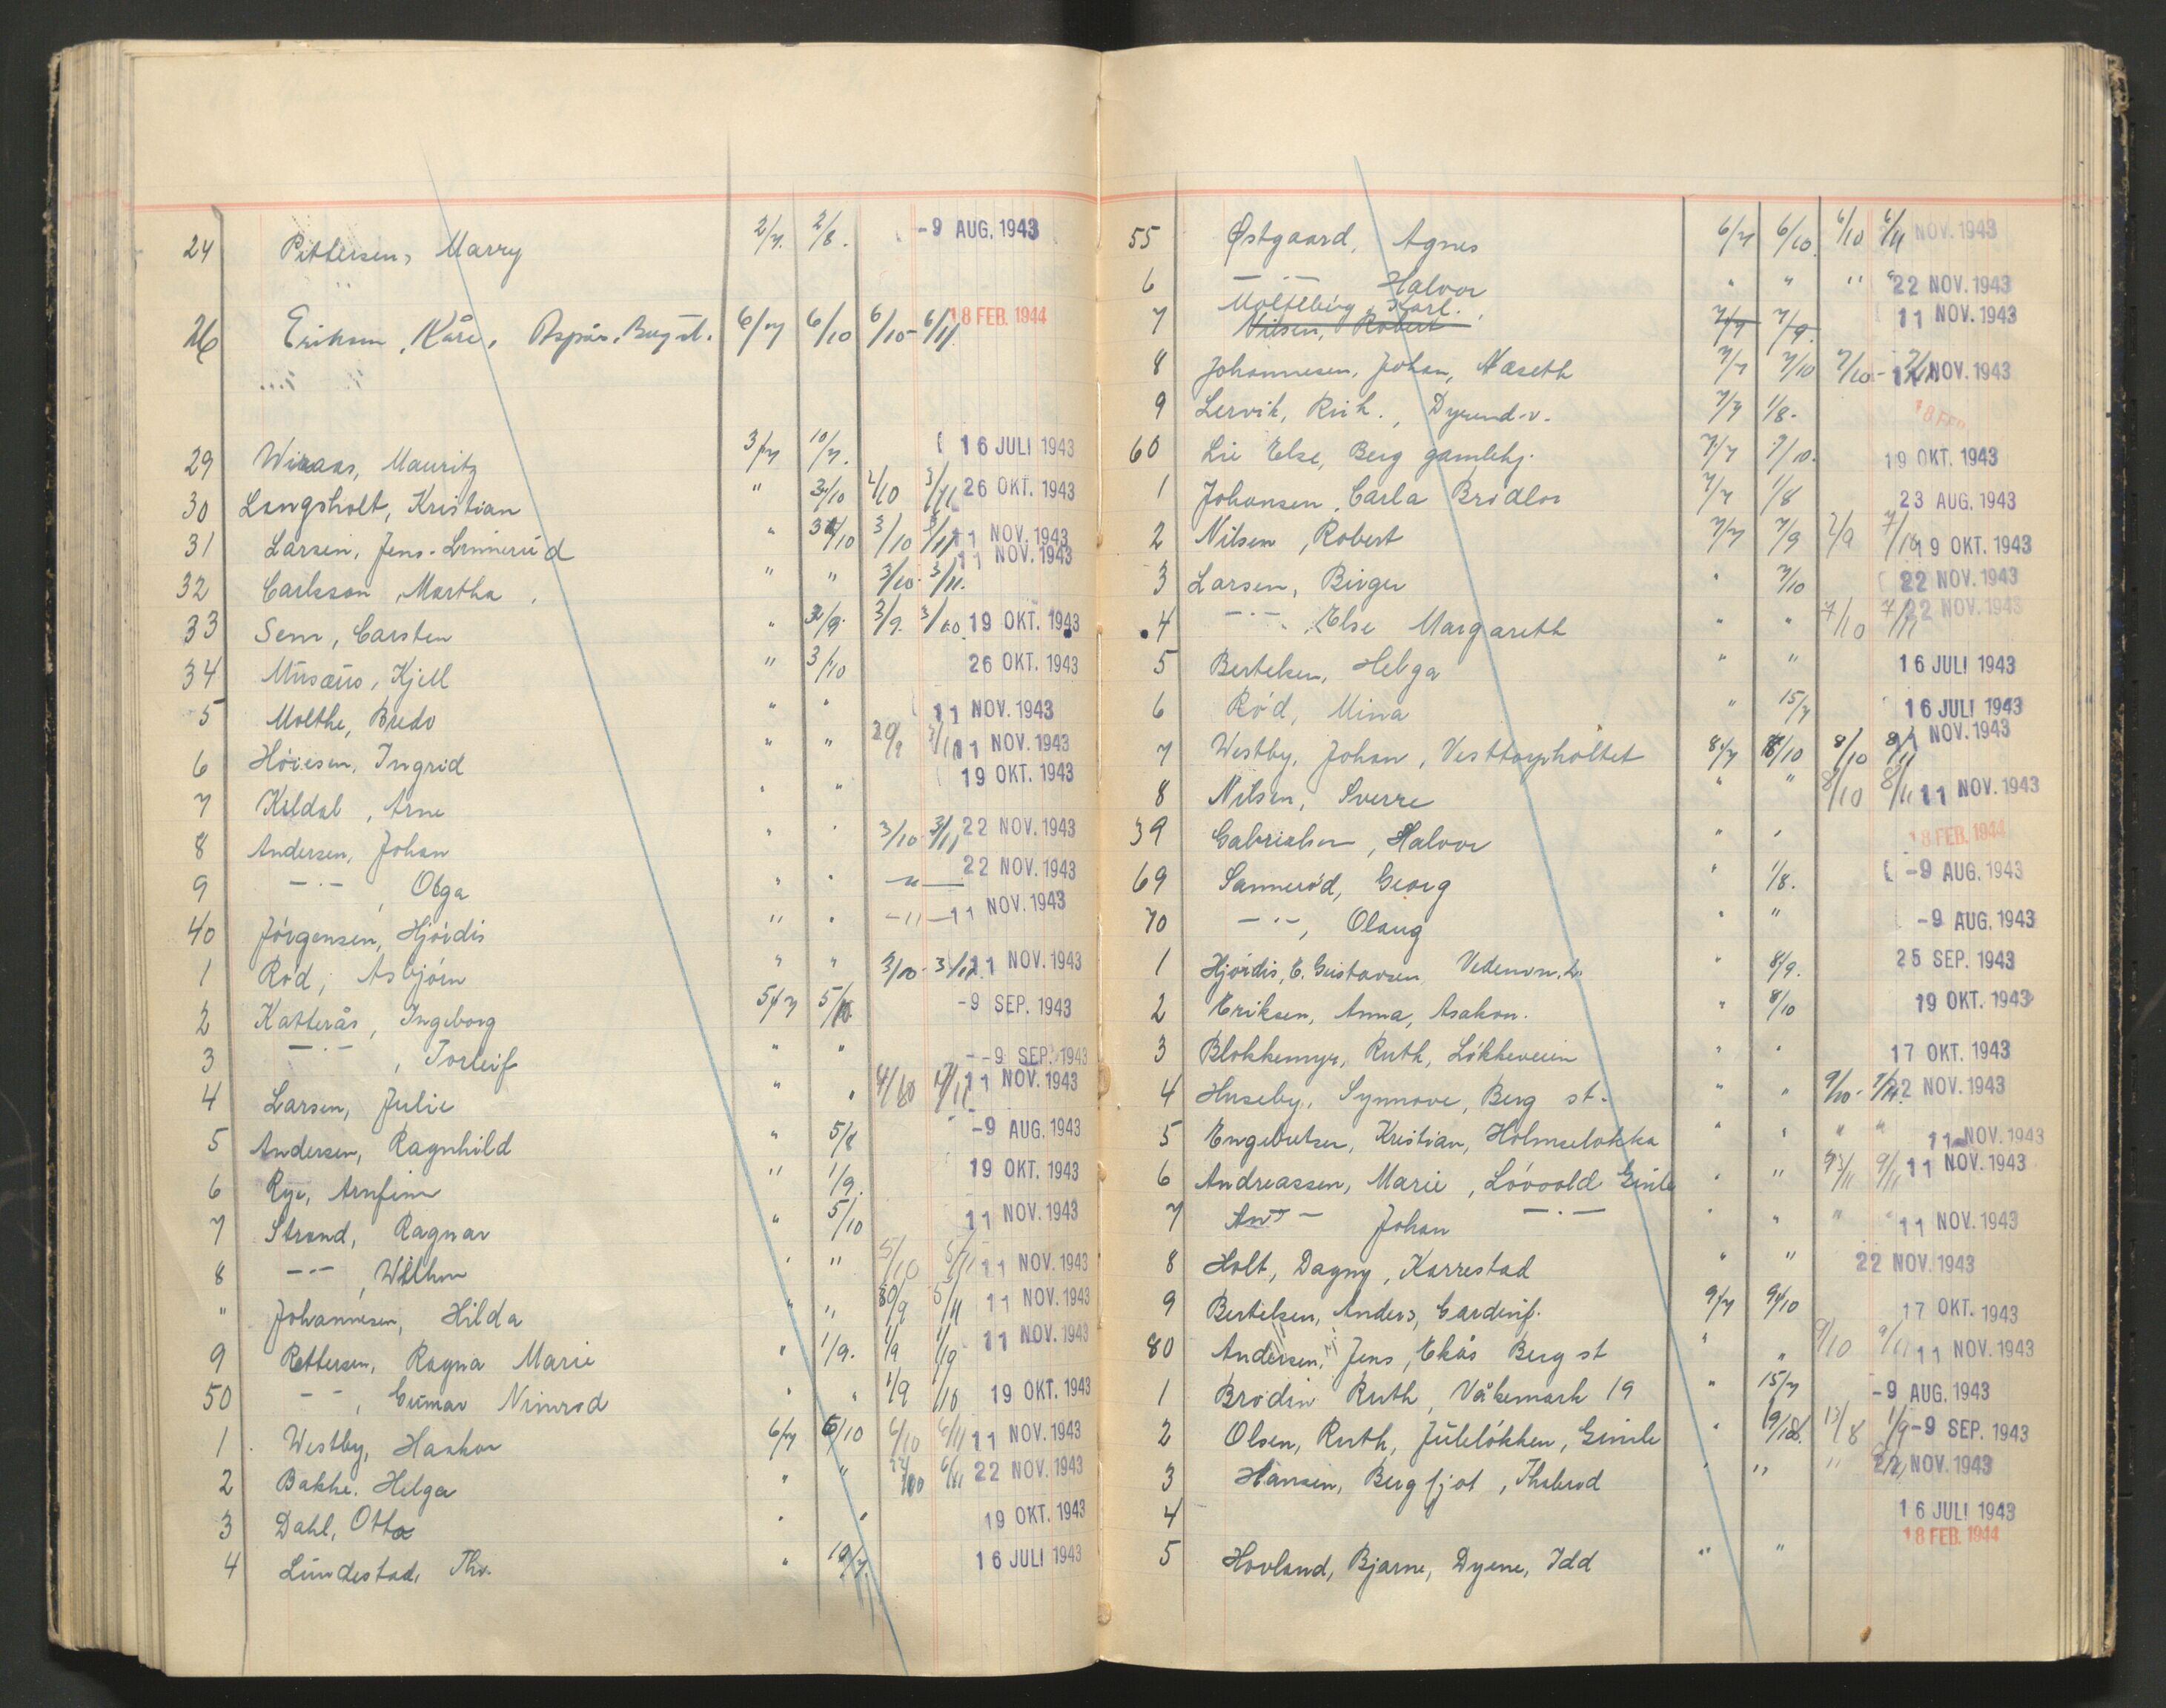 24 Pettersen, Marry 2/7. 2/8. -9 AUG. 1943
26 Eriksen, Kåre, Aspås, Berg st. 6/7 6/10 6/10- 6/11 18 FEB. 1944
29 Wiraas, Mauritz 3/7 10/7. 16 JULI 1943
30 Langsholt, Kristian " 3/10 2/10 3/11 26 OKT. 1943
31 Larsen, Jens - Linnerud " 3/10 3/10 3/11 11 NOV. 1943
32 Carlsson, Martha " " 3/10. 3/11. 11 NOV. 1943
33 Sem, Carsten " 3/9. 3/9. 3/10. 19 OKT. 1943
34 Musæus, Kjell " 3/10 26 OKT. 1943
5 Molthe, Bredo " " 11 NOV. 1943
6 Høiesen, Ingrid " " 29/9 3/11 11 NOV. 1943
7 Kildal, Arne " " 19 OKT. 1943
8 Andersen, Johan " " 3/10- 3/11 22 NOV. 1943
9 — " — , Olga " " — " — 22 NOV. 1943
40 Jörgensen, Hjördis " " — " — 11 NOV. 1943
1 Rød, Asbjörn " " 3/10- 3/11. 11 NOV. 1943
2 Katterås, Ingeborg 5/7 5/10. -9 SEP. 1943
3 — " — , Torleif " " -9 SEP. 1943
4 Larsen, Julie " " 4/10 4/11 11 NOV. 1943
5 Andersen, Ragnhild " 5/8 -9 AUG. 1943
6 Rye, Arnfinn " 1/9. 19 OKT. 1943
7 Strand, Ragnar " 5/10 11 NOV. 1943
8 — " — , Wilhm " " 5/10 5/11 11 NOV. 1943
" Johannesen, Hilda " " 30/9 5/11 11 NOV. 1943
9 Pettersen, Ragna Marie " 1/9. 1/9 1/10 11 NOV. 1943
50 — " — , Gunnar Nimrod " " 1/9 1/10 19 OKT. 1943
1 Westby, Haakon 6/7 6/10 6/10 6/11 11 NOV. 1943
2 Bakke. Helga " " 6/11 22 NOV. 1943
3 Dahl, Otto " " 19 OKT. 1943
4 Lundestad, Thv. " 10/7. 16 JULI 1943
55 Østgaard, Agnes 6/7 6/10. 6/10 6/11 NOV. 1943
6 — " — Halvor " " " " 22 NOV. 1943
Molteberg, Karl.
7 Nilsen, Robert 7/7 7/9. 11 NOV. 1943
8 Johannesen, Johan, Næseth 7/7 7/10 7/10 - 7/11 11 NOV. 1943
9 Lervik, Rich., Dyrend.v. 7/7 1/8. 18 FEB
60 Lie Else, Berg gamlehj. 7/7 7/10. 19 OKT. 1943
1 Johansen, Carla Brödlos 7/7 1/8 23 AUG. 1943
2 Nilsen, Robert 7/7 7/9 7/9 7/10 19 OKT. 1943
3 Larsen, Birger " 7/10 22 NOV. 1943
4 — " — , Else Margareth " " 7/10 7/11 22 NOV. 1943
5 Bertelsen, Helga " " 16 JULI 1943
6 Röd, Mina " 15/7 16 JULI 1943
7 Westby, Johan, Vesttorpholtet 8/7 8/10 8/10 8/11 11 NOV. 1943
8 Nilsen, Sverre " " 8/10 8/11 11 NOV. 1943
39 Gabrielsen, Halvor " " 18 FEB. 1944
69 Sanneröd, Georg " 1/8. -9 AUG. 1943
70 — " — , Olaug " " -9 AUG. 1943
1 Hjördis, E. Gustavsen " 8/9. 25 SEP. 1943
2 Eriksen, Anna, Asakon. " 8/10 19 OKT. 1943
3 Blokkemyr, Ruth, Lökkeveien " " 17 OKT. 1943
4 Huseby, Synnøve, Berg st. " " 9/10 - 9/11. 22 NOV. 1943
5 Engebretsen, Kristian, Holmseløkka " " " " 11 NOV. 1943
6 Andreassen, Marie, Lövvold Gimle " " 9/11 11 NOV. 1943
7 An — " — Johan — " — " " " " 11 NOV. 1943
8 Holt, Dagny, Karrestad " " 22 NOV. 1943
9 Bertelsen, Anders, Gardenf. 9/7 9/10 17 OKT. 1943
80 Andersen, Jens, Ekås Berg st " " 9/10 9/11 11 NOV. 1943
1 Brodin Ruth, Våkemark 19 " 15/7 -9 AUG. 1943
2 Olsen, Ruth, Juleløkken, Gimle " 13/8 1/9 -9 SEP. 1943
3 Hansen, Bergljot, " " " 22 NOV. 1943
4 16 JULI 1943
5 Hovland, Bjarne, Dyene, Idd " " 18 FEB. 1944